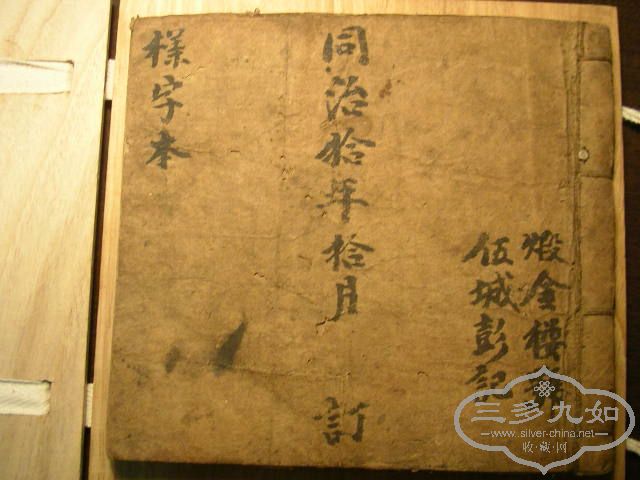 煅金樓
伍城彭記
同治拾年拾月 訂
樣字本
三多九如
www.silver-china.net
收·藏·网